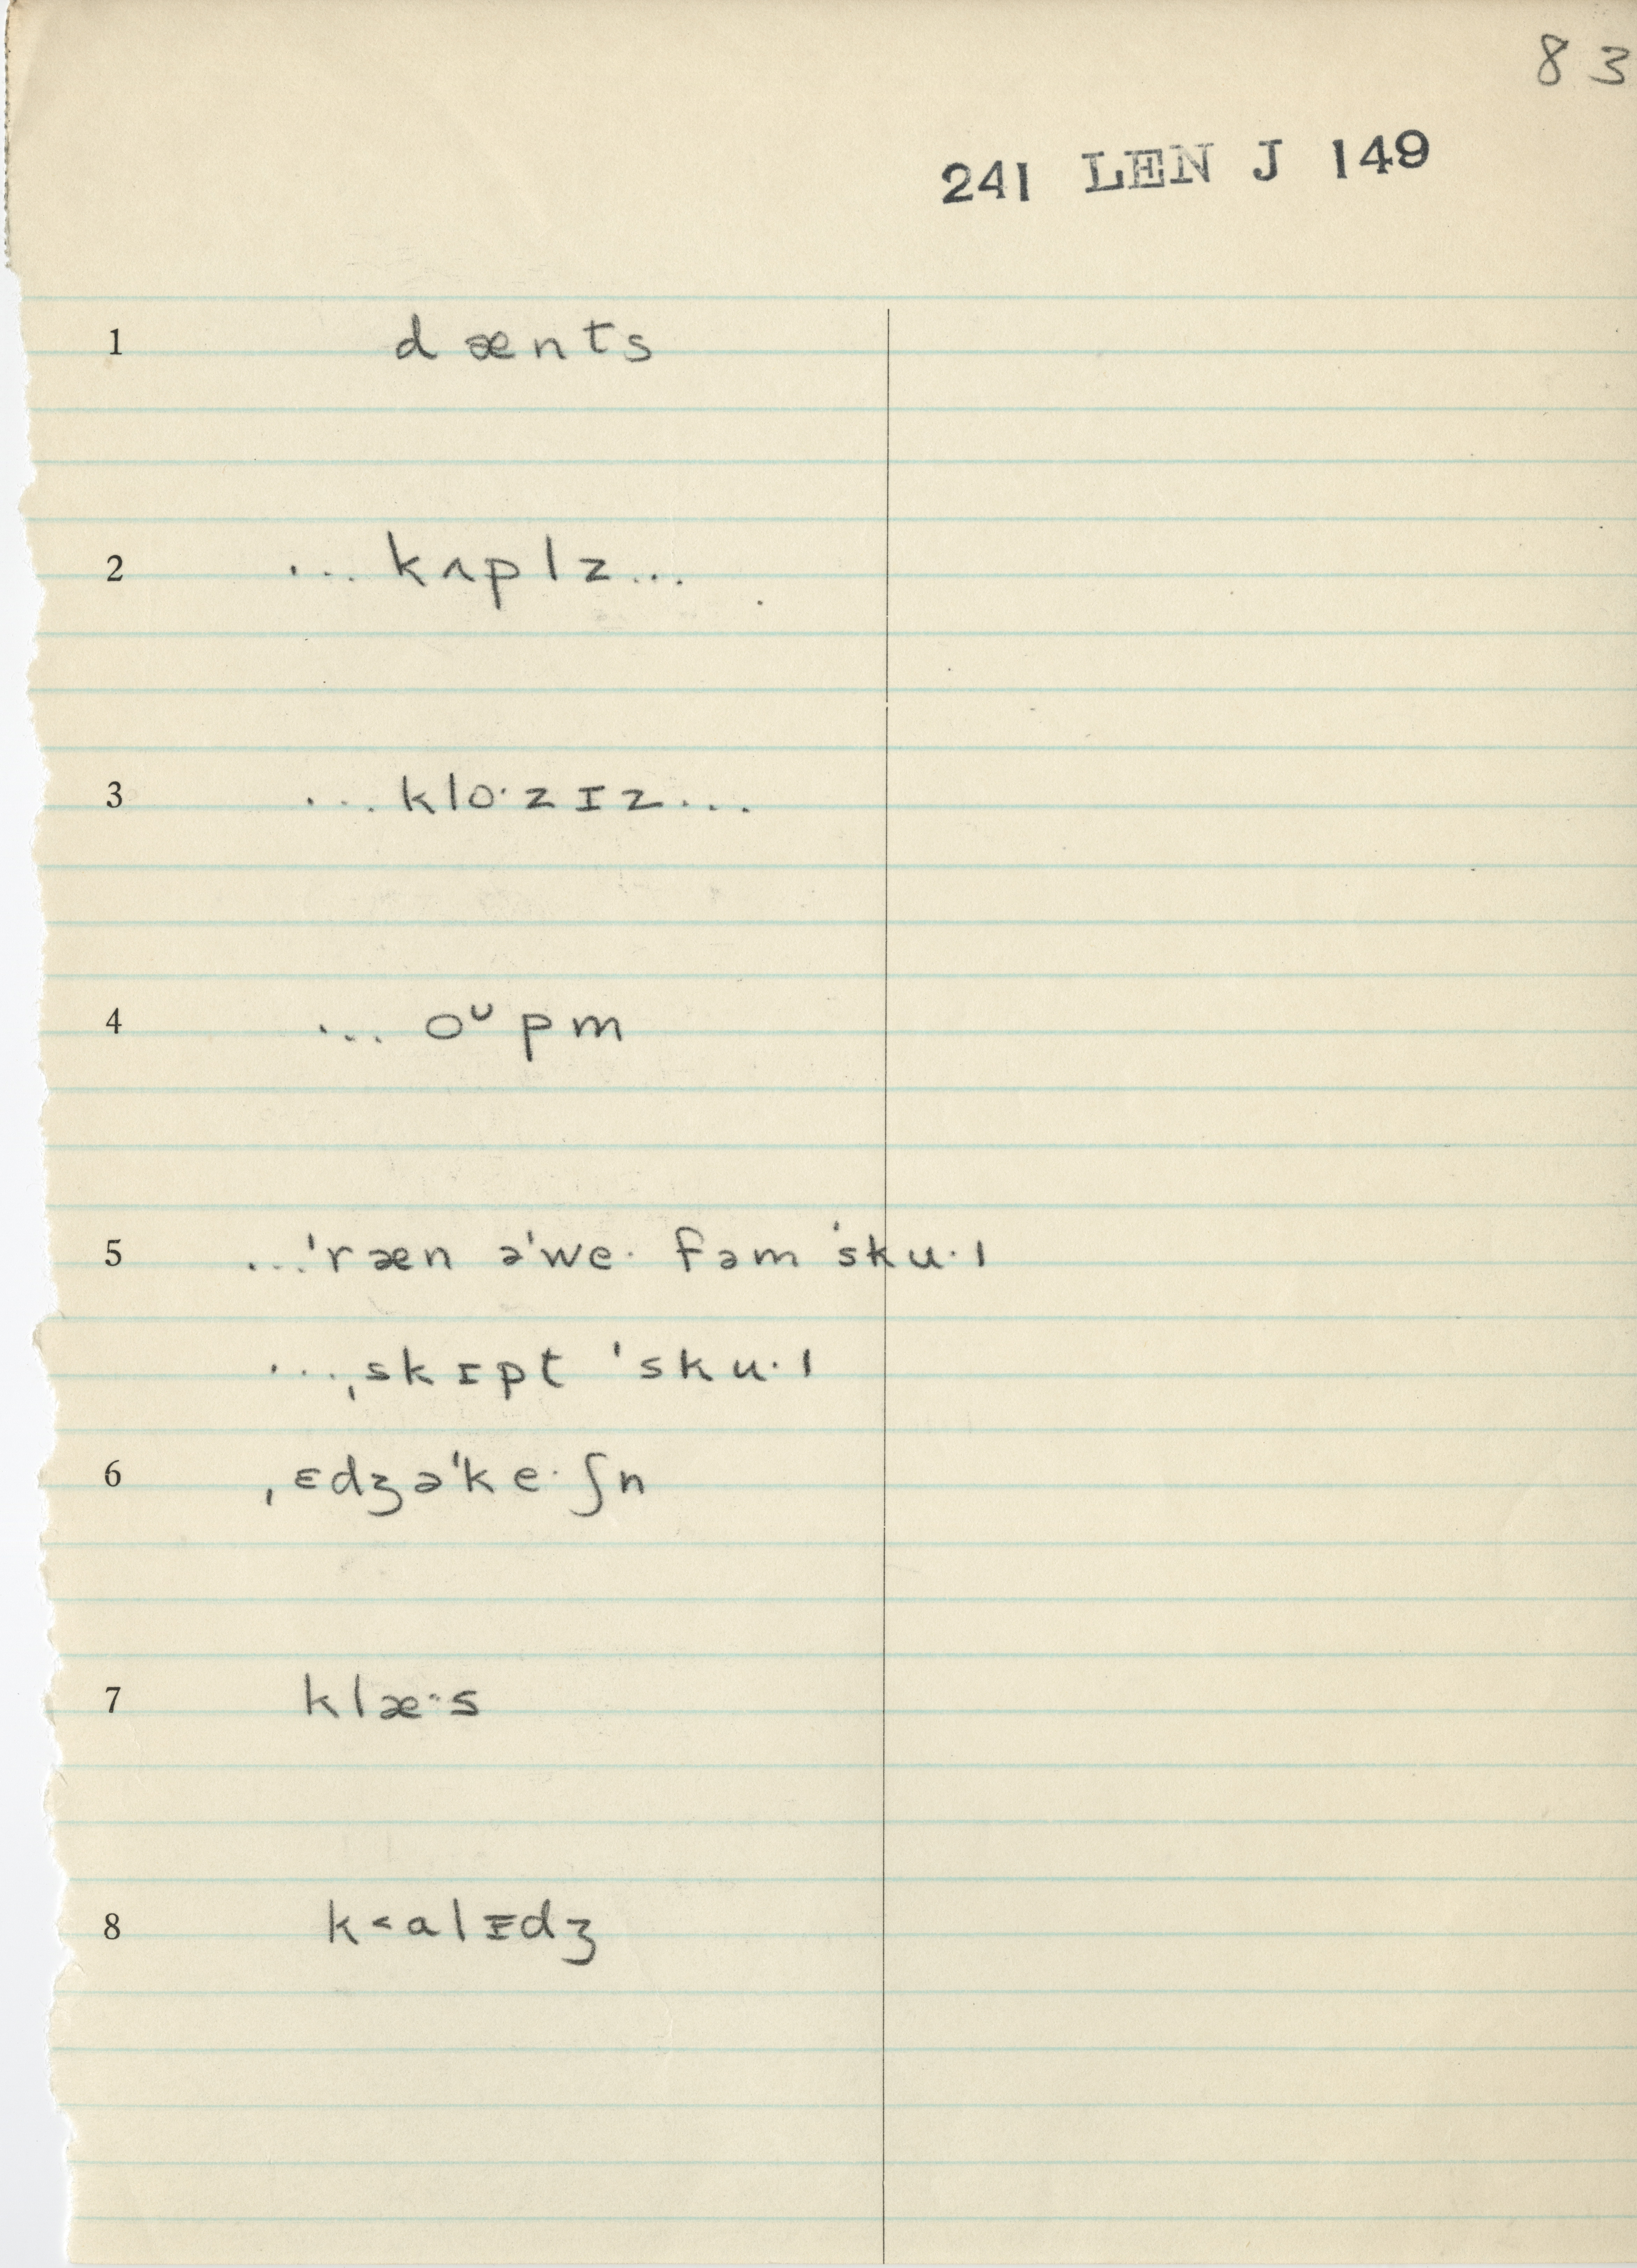 83
241 LEN J 149
1 dænts
2 ... kʌplz...
3 ... klo·zɪz...
4 ... oᴜpm
5 ...ˈræn əˈwe· fəm ˈsku·l
...ˌskɪpt ˈsku·l
6 ˌɛdʒəˈke·ʃn
7 klæ·s
8 k<alɪdʒ